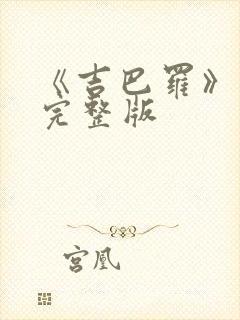 《吉巴罗》
完整版
宫凰